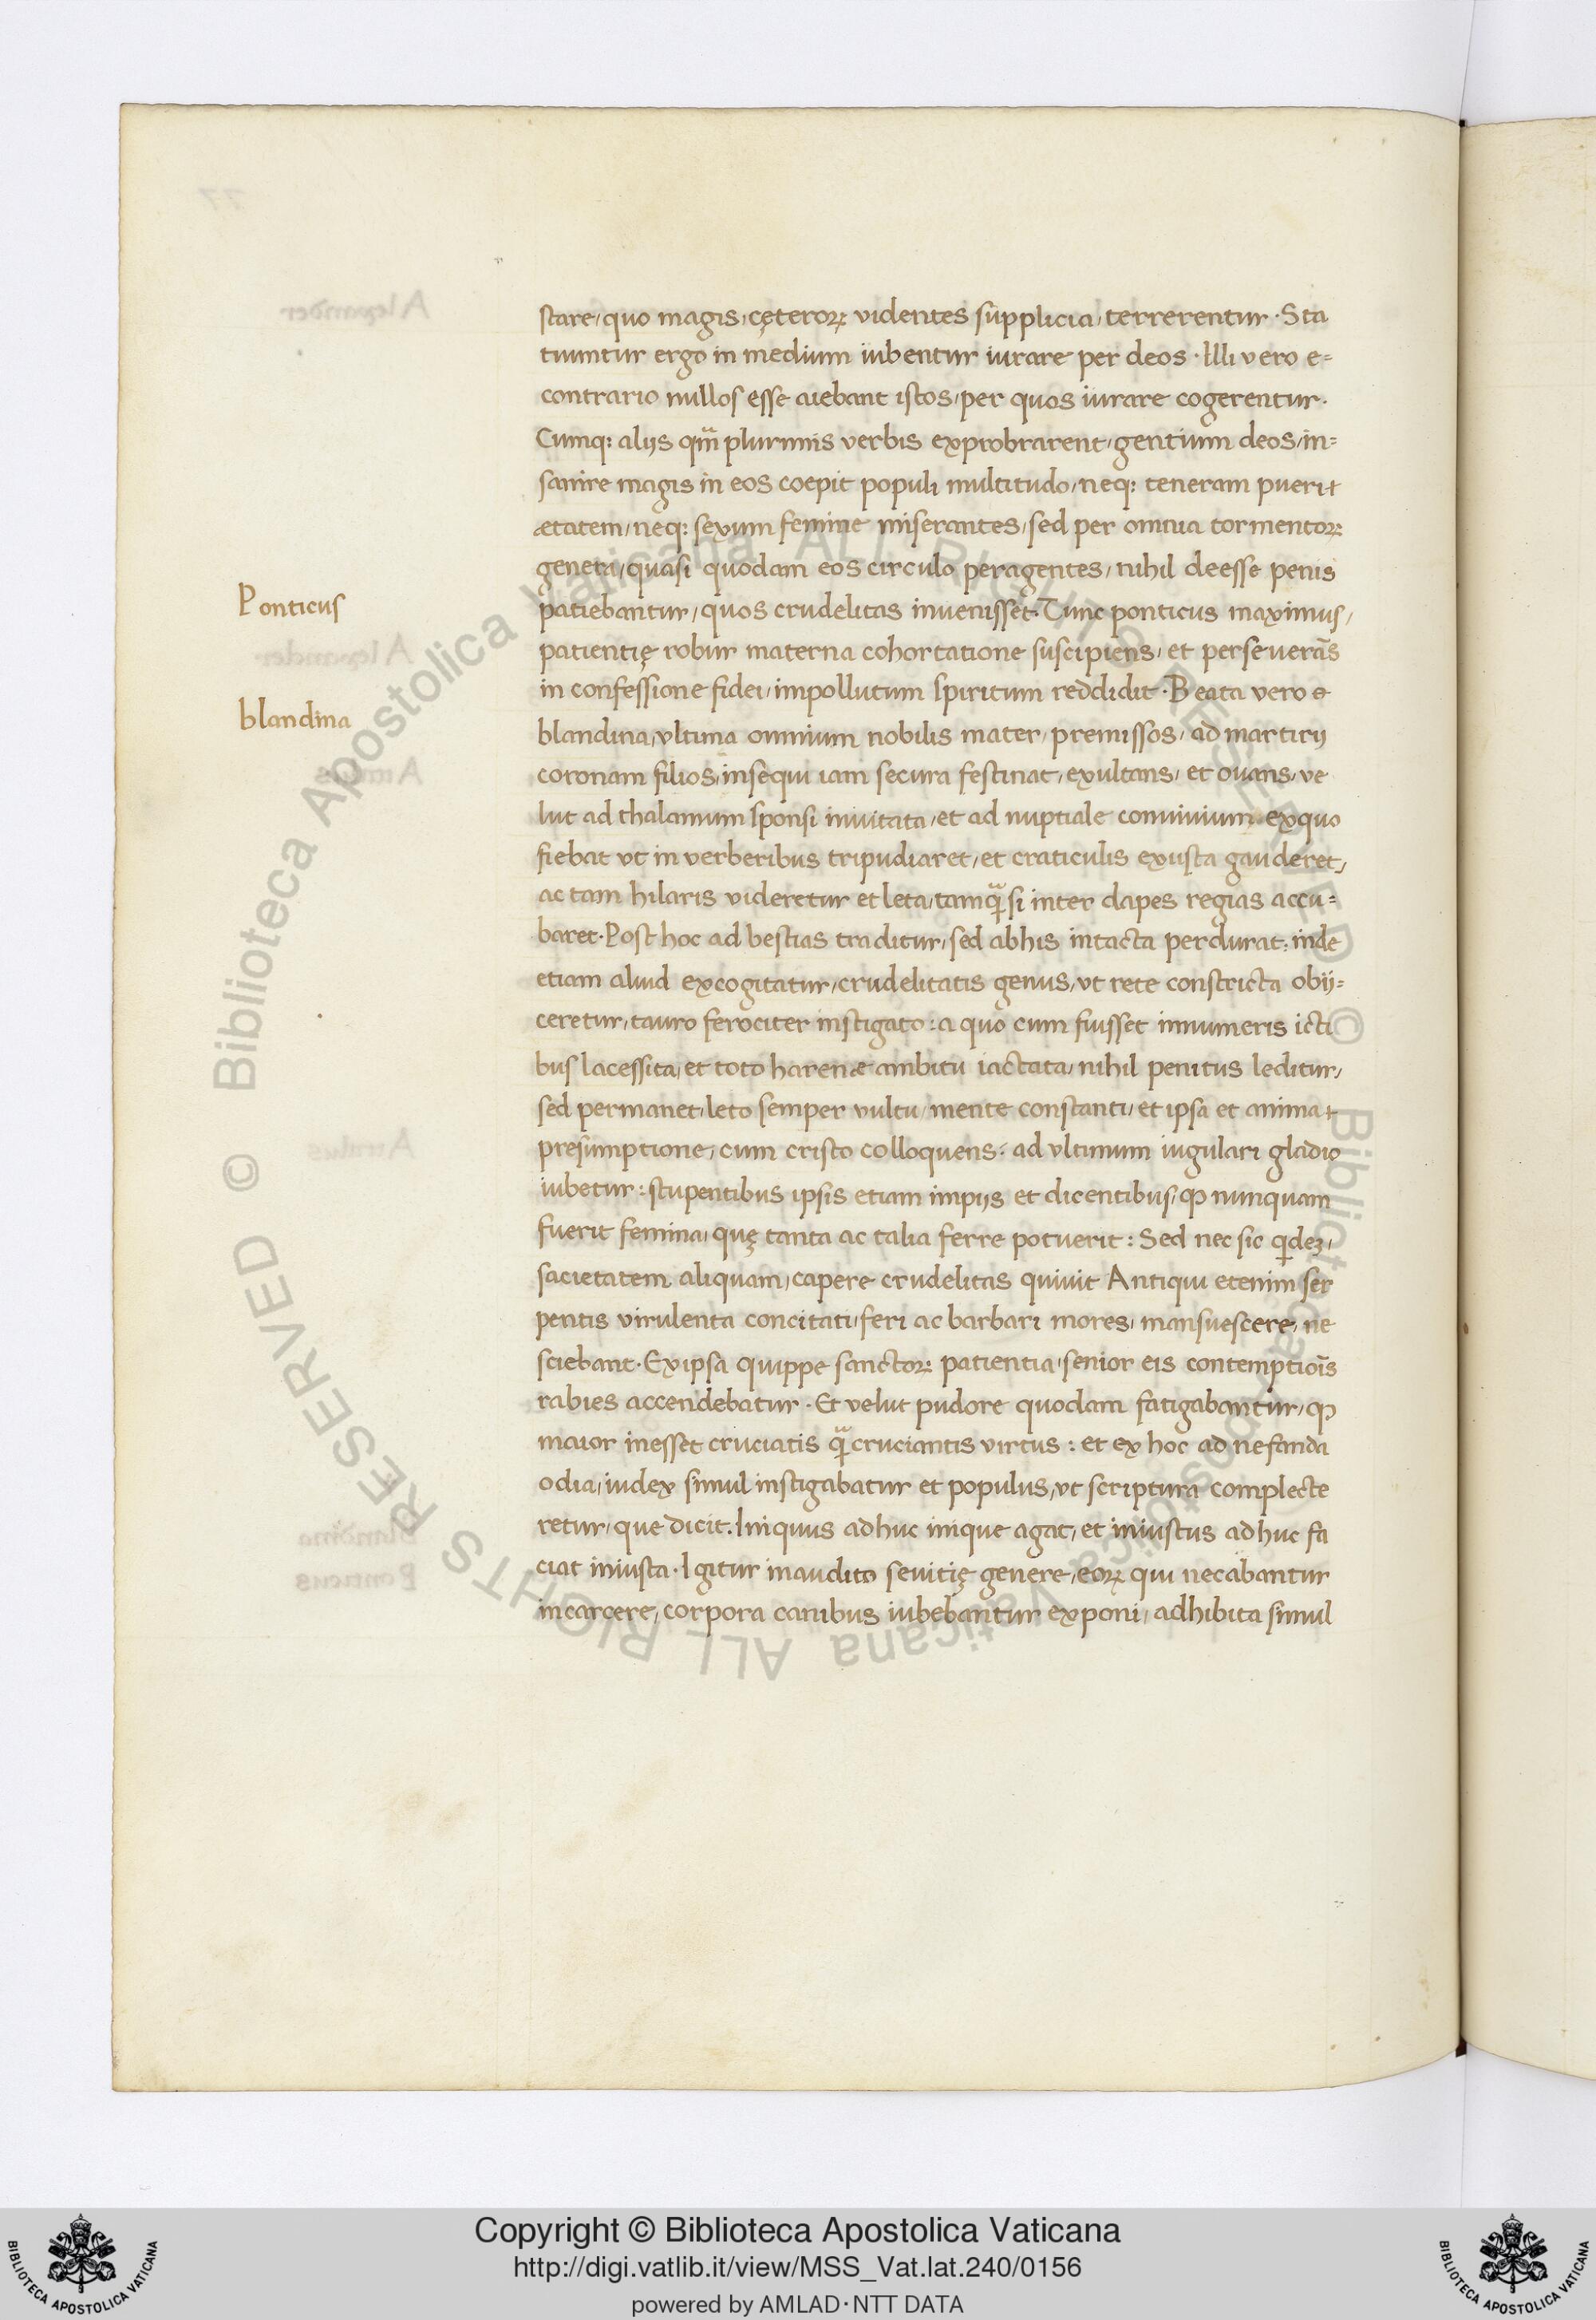 stare, quo magis, cęteroꝝ videntes supplicia, terrerentur · Sta
tuuntur ergo in medium iubentur iurare per deos · Illi vero e=
contrario nullos esse aiebant istos, per quos iurare cogerentur ·
Cumq: alijs qm̃ plurimis verbis exprobrarent, gentium deos, in=
sanire magis in eos coepit populi multitudo, neq: teneram pueri
ætatem, neq: sexum femine miserantes, sed per omnia tormentoꝝ
genera, quasi quodam eos circulo peragentes, nihil deesse penis
patiebantur, quos crudelitas inuenisset · Tunc ponticus maximus,
patientię robur materna cohortatione suscipiens, et perseuerãs
in confessione fidei, impollutum spiritum reddidit · Beata vero e
blandina, vltima omnium nobilis mater, premissos, ad martirij
coronam filios, insequi iam secura festinat, exultans, et ouans, ve
lut ad thalamum sponsi inuitata, et ad nuptiale conuiuium exquo
fiebat vt in verberibus tripudiaret, et craticulis exusta gauderet,
ac tam hilaris videretur et leta, tamq̃ si inter dapes regias accu=
baret · Post hoc ad bestias traditur, sed abhis intacta perdurat: inde
etiam aliud excogitatur, crudelitatis genus, vt rete constricta obij=
ceretur, tauro ferociter instigato : a quo cum fuisset innumeris icti
bus lacessita, et toto harenæ ambitu iactata, nihil penitus leditur,
sed permanet, leto semper vultu, mente constanti, et ipsa et anima
presumptione, cum cristo colloquens: ad vltimum iugulari gladio
iubetur : stupentibus ipsis etiam impijs et dicentibus, ꝙ nunquam
fuerit femina, quę tanta ac talia ferre potuerit : Sed nec sic qͥdeꝫ,
sacietatem aliquam, capere crudelitas quiuit Antiqui etenim ser
pentis virulenta concitati, feri ac barbari mores, mansuescere, ne
sciebant · Ex ipsa quippe sanctoꝝ patientia, senior eis contemptiois̃
rabies accendebatur · Et velut pudore quodam fatigabantur, ꝙ
maior inesset cruciatis q̃ cruciantis virtus : et ex hoc ad nefanda
odia, iudex simul instigabatur et populus, vt scriptura complecte
retur, que dicit. Iniquus adhuc inique agat, et iniustus adhuc fa
ciat iniusta · Igitur inaudito seuitię genere, eoꝝ qui necabantur
incarcere, corpora canibus iubebantur exponi, adhibita simul
Ponticus
blandina
© Biblioteca Apostolica Vaticana ALL RIGHTS RESERVED
© Biblioteca Apostolica Vaticana ALL RIGHTS RESERVED
Copyright © Biblioteca Apostolica Vaticana
http://digi.vatlib.it/view/MSS_Vat.lat.240/0156
powered by AMLAD·NTT DATA
BIBLIOTECA APOSTOLICA VATICANA
BIBLIOTECA APOSTOLICA VATICANA